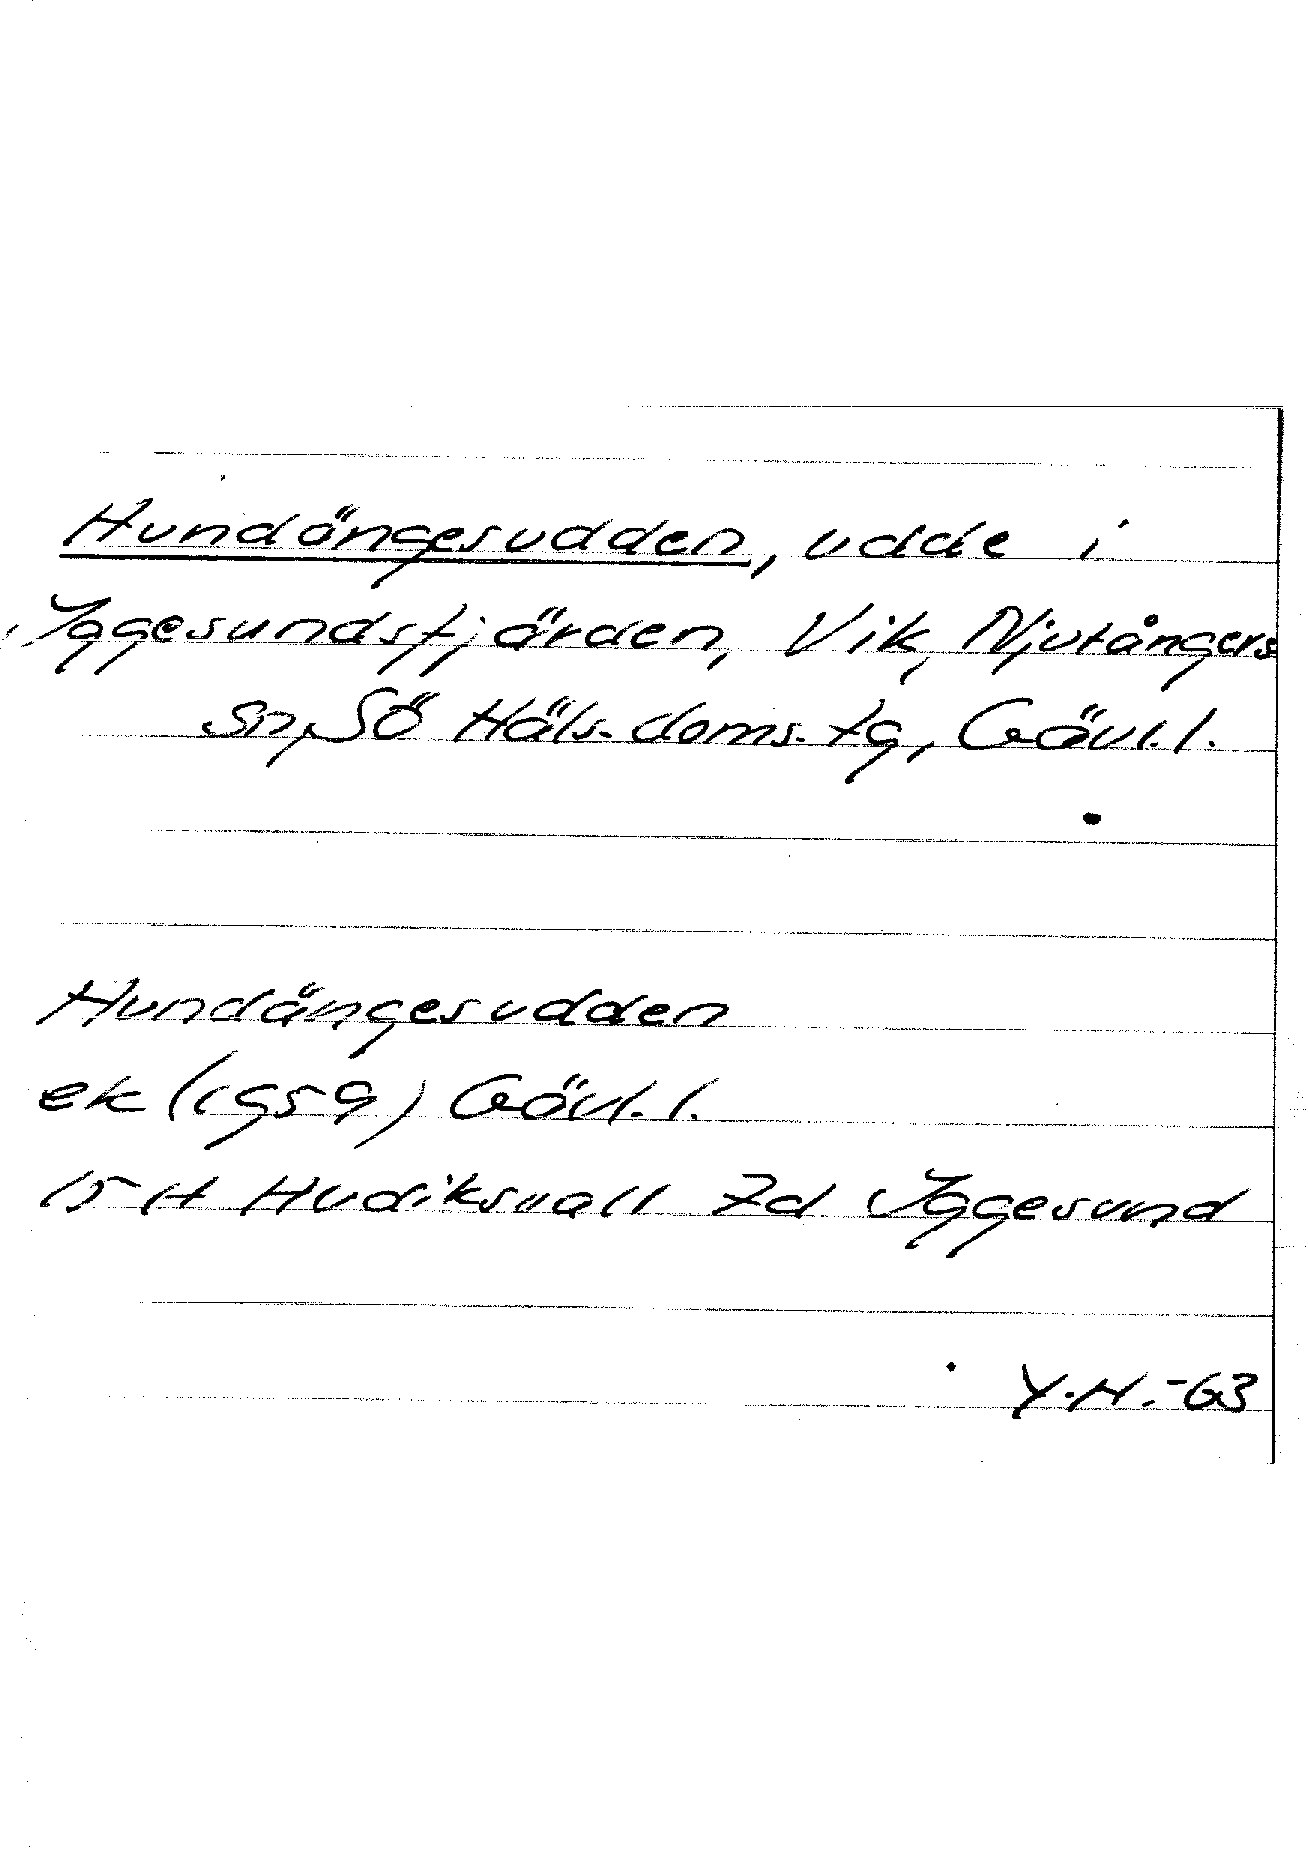 Hundängesudden, udde i
Iggesundsfjärden, Vik, Njutångers
sn, Sö Häls. doms. tg, Gävl. l.
Hundängesudden
ek (1959) Gävl. l.
15 H Hudiksvall 7d Iggesund
Y.H.-63